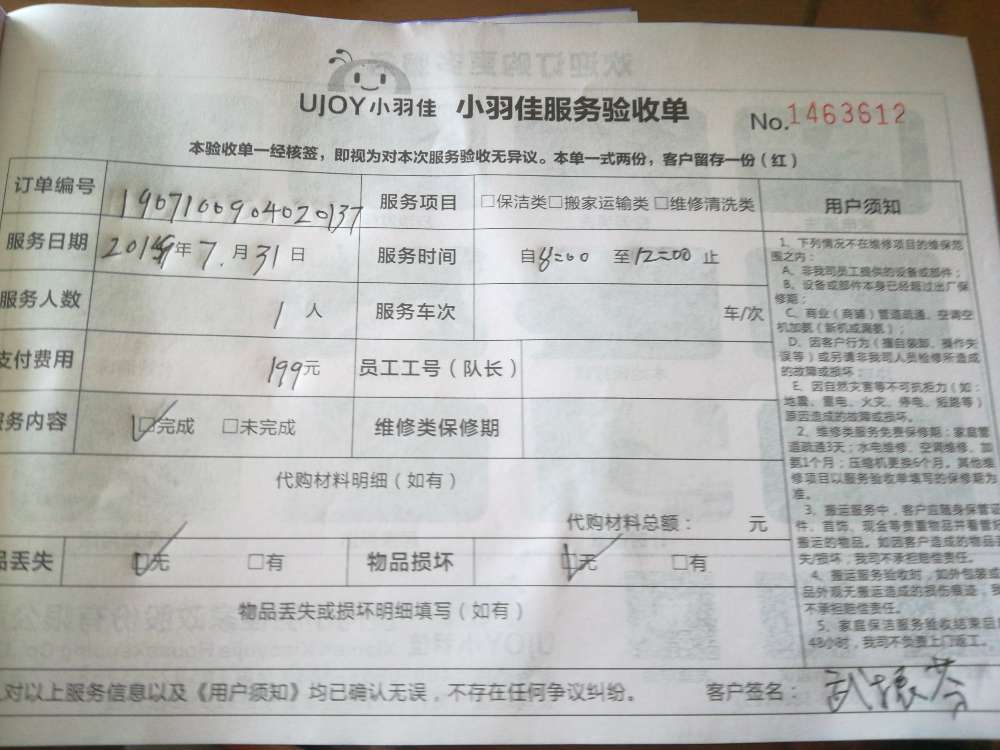 UJOY小羽佳 小羽佳服务验收单 No.1463612
本验收单一经核签，即视为对本次服务验收无异议。本单一式两份，客户留存一份（红）
订单编号 1907100904020137 服务项目 □保洁类□搬家运输类□维修清洗类 用户须知
服务日期 2019年7.月31日 服务时间 自8:00 至12:00止
服务人数 1人 服务车次 车/次
支付费用 199元 员工工号（队长）
服务内容 □完成 □未完成 维修类保修期
代购材料明细（如有）
代购材料总额： 元
品丢失 □无 □有 物品损坏 □无 □有
物品丢失或损坏明细填写（如有）
对以上服务信息以及《用户须知》均已确认无误，不存在任何争议纠纷。 客户签名：
1、下列情况不在维修项目的维保范
围之内：
A、非我司员工提供的设备或部件；
B、设备或部件本身已经超过出厂保
修期；
C、商业（商铺）管道疏通、空调空
机加氨（新机或漏氨）；
D、因客户行为（擅自装卸、操作失
误等）或另请非我司人员检修所造成
的故障或损坏
E、因自然灾害等不可抗拒力（如：
地震、雷电、火灾、停电、短路等）
原因造成的故障或损坏。
2、维修类服务免费保修期：家庭管
道疏通3天；水电维修、空调维修、加
氨1个月；压缩机更换6个月。其他维
修项目以服务验收单填写的保修期为
准。
3、搬运服务中，客户应随身保管证
件、首饰、现金等贵重物品并看管好
搬运的物品。如因客户造成的物品丢
失/损坏，我司不承担赔偿责任。
4、搬运服务验收时，如外包装或
品外观无搬运造成的损伤痕迹，我
不承担赔偿责任。
5、家庭保洁服务验收结束后
48小时，我司不负责上门返工。